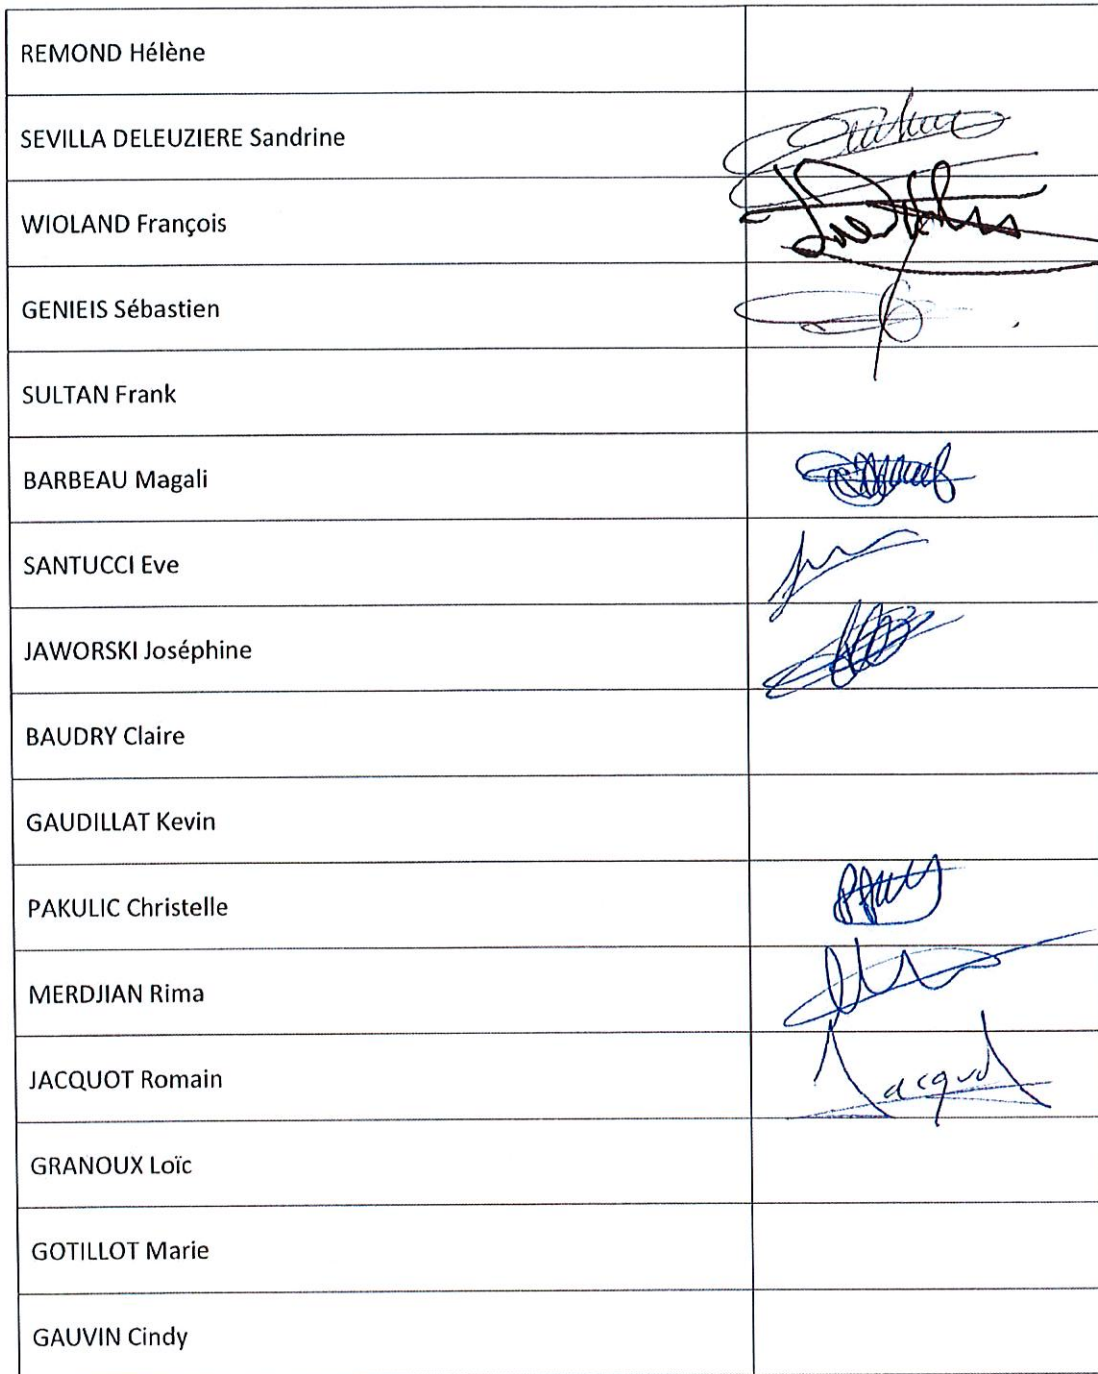 REMOND Hélène
SEVILLA DELEUZIERE Sandrine
WIOLAND François
GENIEIS Sébastien
SULTAN Frank
BARBEAU Magali
SANTUCCI Eve
JAWORSKI Joséphine
BAUDRY Claire
GAUDILLAT Kevin
PAKULIC Christelle
MERDJIAN Rima
JACQUOT Romain Jacquot
GRANOUX Loïc
GOTILLOT Marie
GAUVIN Cindy